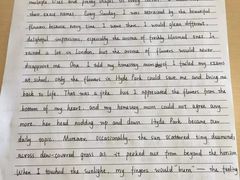 multiple lilies and pretty shapes in every corner
their exact names. Every Sunday, I was attracted by the beautiful
flowers because every time I came there, I would glean different
delightful impressions, especially the aroma of freshly bloomed ones. It
rained a lot in London, but the aroma of flowers would never
disappoint me. One I told my homestay mum that if I failed my exams
at school, only the flowers in Hyde Park could save me and bring me
back to life. That was a joke but I appreciated the flowers from the
bottom of my heart and my homestay mum could not agree any
more, her head nodding up and down. Hyde Park became our
daily topic. Moreover, occasionally, the sun scattered tiny diamonds
across dew-covered grass as it peeked out from beyond the horizon.
When I touched the sunlight, my fingers would burn — the feeling